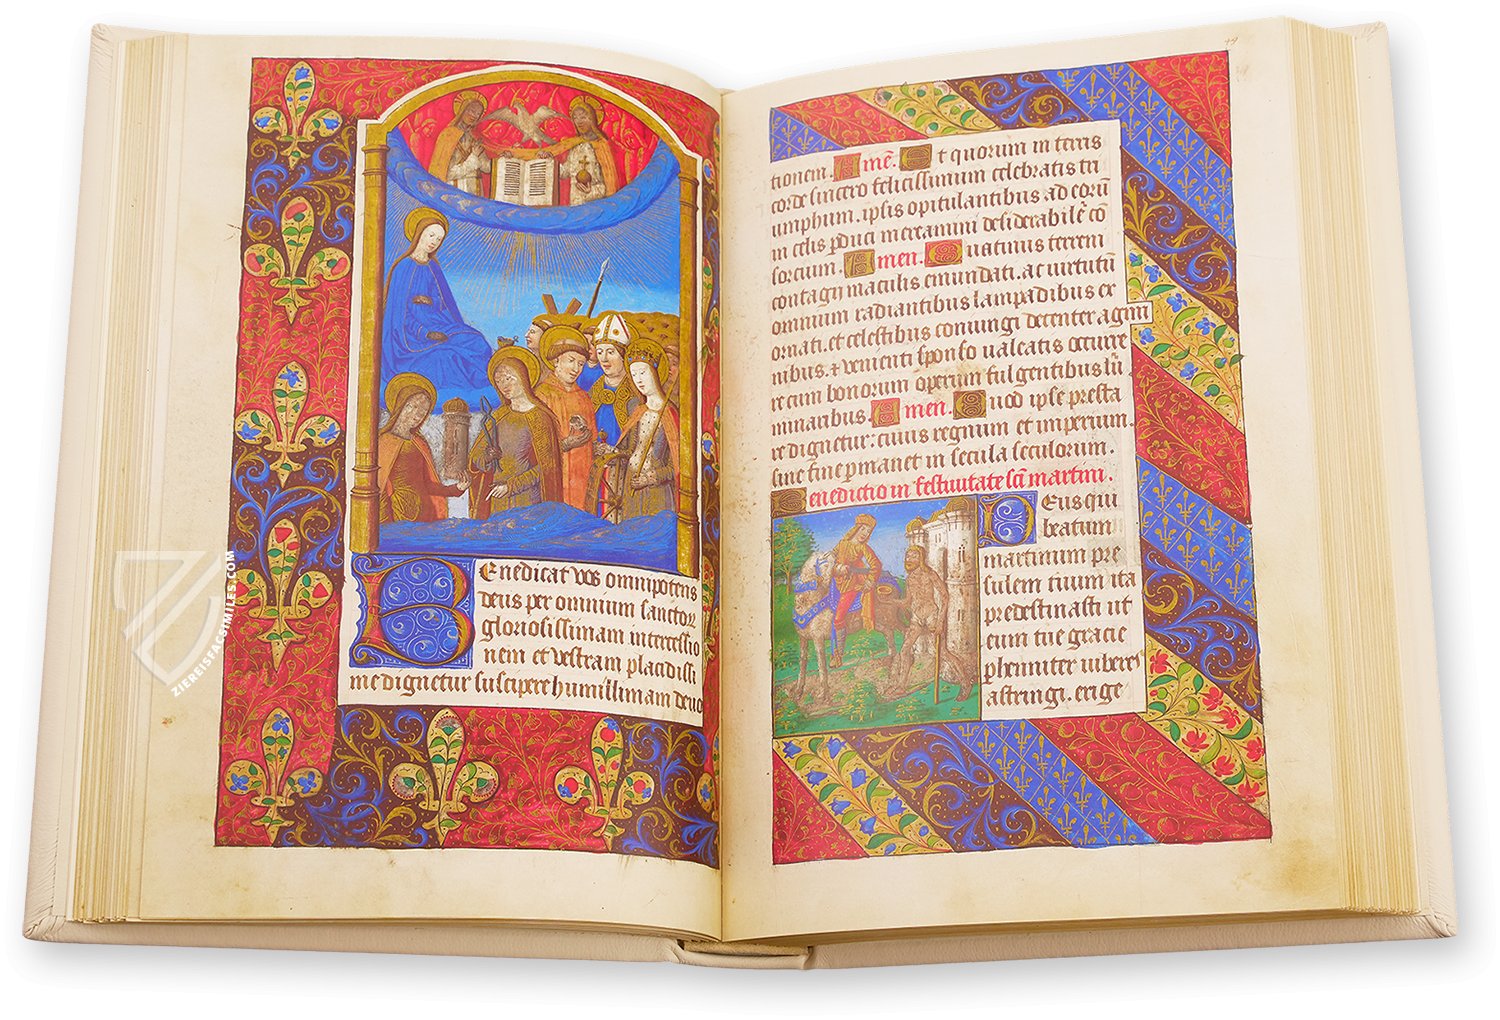 Benedicat vos omnipotens
deus per omnium sanctoꝝ
gloriosissimam intercessio
nem et vestram placidissi
me dignetur suscipere humillimam devo
tionem. Amē. Et quorum in terris
corde sincero felicissimum celebratis tri
umphum. ipsis opitulantibus ad eorū
in celis pduci mereamini desiderabilē cō
sorcium. Amen. Eruatimus terreni
contagij maculis emundati. ac virtutū
omnium radiantibus lampadibus ex
ornati. et celestibus coniungi decenter agim
nibus. et venienti sponso valeatis occurre
re cum bonorum operum fulgentibus lu
minaribus. Amen. Quod ipse presta
re dignetur: cuius regnum et imperium.
sine fine pmanet in secula seculorum.
Benedictio in festivitate scī martini.
Deus qui
beatum
martinum pre
sulem tium ita
predestinasti ut
eum tue gracie
pleniter iuberes
astringi. erige
ZIEREISFACSIMILES.COM